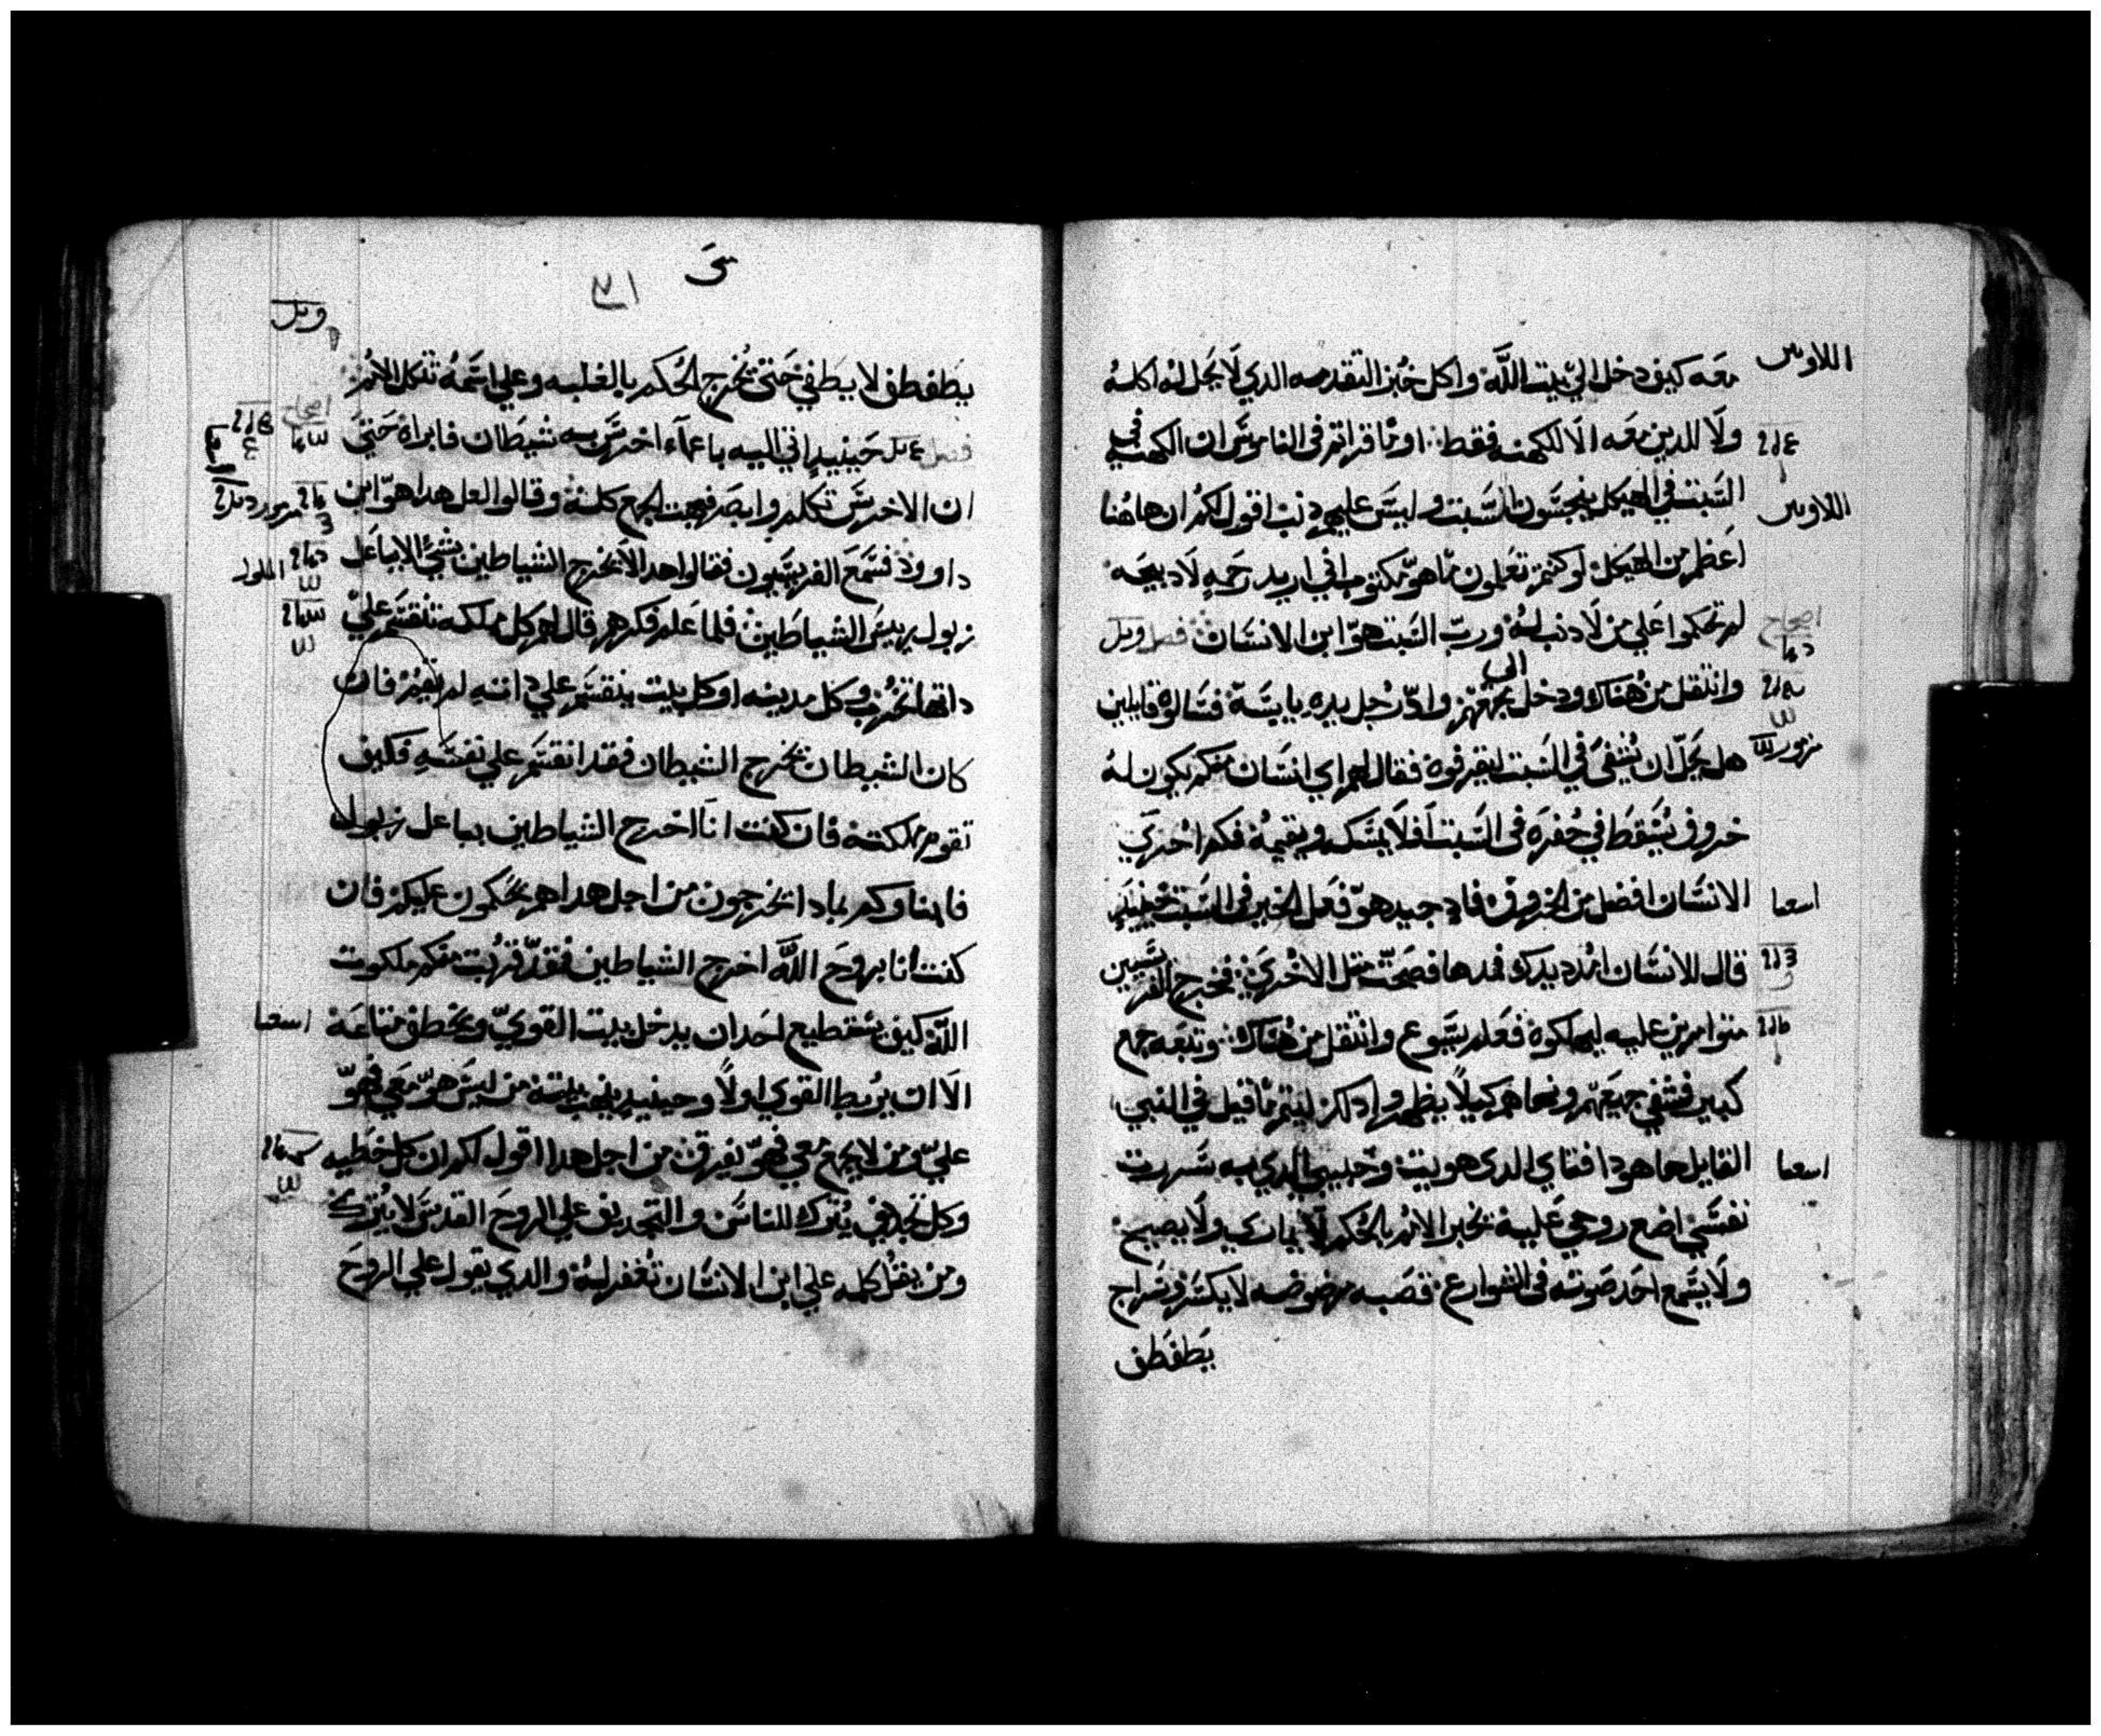 معه كيف دخل الي بيت اللَّه واكل خبز التقدمه الدي لَا يحل له اكله
ولَا للدين معه الَا للكهنه فقط اوما قراتم في الناموس ان الكهنه في
السَّبت في الهيكل ينجسَّون السَّبت وليسَ عليهم دنب اقول لكم ان هاهُنا
اعظم من الهيكل لو كنتم تعلمون ما هو مكتوب اني اريد رحمه لَا دبيحه
لم تحكموا علي من لَا دنب له ورب السَّبت هو ابن الانسَان فصل
وانتقل من هُناك ودخل الي مجمعهم وادا رجل يده يابسَه فسَالوه قايلين
هل يحل ان يُشفي في السَّبت ليقرفوه فقال لهم اي انسَان منكم يكون له
خروف يسَقط في حُفره في السَّبت افلَا يمسَكه ويقيمه فكم احري
الانسَان افضل من الخروف فاد جيد هو فعل الخير في السَّبت حينيدٍ
قال للانسَان امدد يدك فمدها فصحت متل الاخري فخرج الفريسَيين
متوامرين عليه ليهلكوه فعلم يسَوع وانتقل من هُناك وتبعه جمع
كبير فشفي جميعهم ونهاهم كيلَا يظهروا دلك ليتم ما قيل في النبي
القايل ها هودا فتاي الدي هويت وحبيبي الدي به سَرت
نفسَي اضع روحي عليه يخبر الامم بالحكم لَا يماري ولَا يصيح
ولَا يسَمع احد صوته في الشوارع قصبه مرضوضه لَا يكسَر وسَراج
يطفطف
اللاويين
اللاويين
اصحاح
اسعيا
اسعيا
يطفطف لَا يطفي حتي تخرج الحُكم بالغلبه وعلي اسَمه تتكل الامم
حينيدٍ اتي اليه باعماء اخرسَ به شيطان فابراه حتي
ان الاخرسَ تكلم وابصر فبهت الجمع كله وقالوا لعل هدا هو ابن
داوود فسَمع الفريسَيون فقالوا هدا لَا يخرج الشياطين بشي الا بباعل
زبول رييسَ الشياطين فلما علم فكرهم قال لهم كل مملكه تنقسَم علي
داتها تخرب وكل مدينه او كل بيت ينقسَم علي داته لم يقم فان
كان الشيطان يخرج الشيطان فقد انقسَم علي نفسَه فكيف
تقوم مملكته فان كنت انا اخرج الشياطين بباعل زبول
فابناوكم بمادا يخرجون من اجل هدا هم يحكمون عليكم فان
كنت انا بروح اللَّه اخرج الشياطين فقد قربت منكم ملكوت
اللَّه كيف يسَتطيع احد ان يدخل بيت القوي ويخطف متاعه
الَا ان يربط القوي اولًا وحينيدٍ ينهب بيته من ليسَ هو معي فهو
علي ومن لَا يجمع معي فهو يفرق من اجل هدا اقول لكم ان كل خطيه
وكل تجديف يُترك للناسَ والتجديف علي الروح القدسَ لَا يترك
ومن يقل كلمه علي ابن الانسَان تُغفر له والدي يقول علي الروح
اصحاح
الملوك
اسعيا